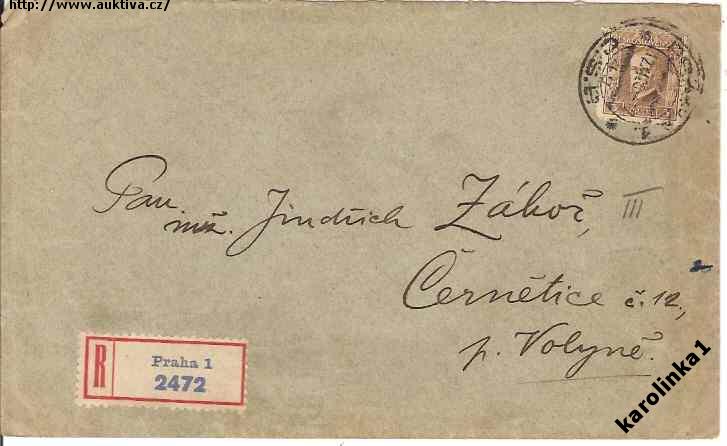 http://www.auktiva.cz/
Pan
inž. Jindřich Záboř,
III
Černětice č. 12,
p. Volyně.
R
Praha 1
2472
karolinka1